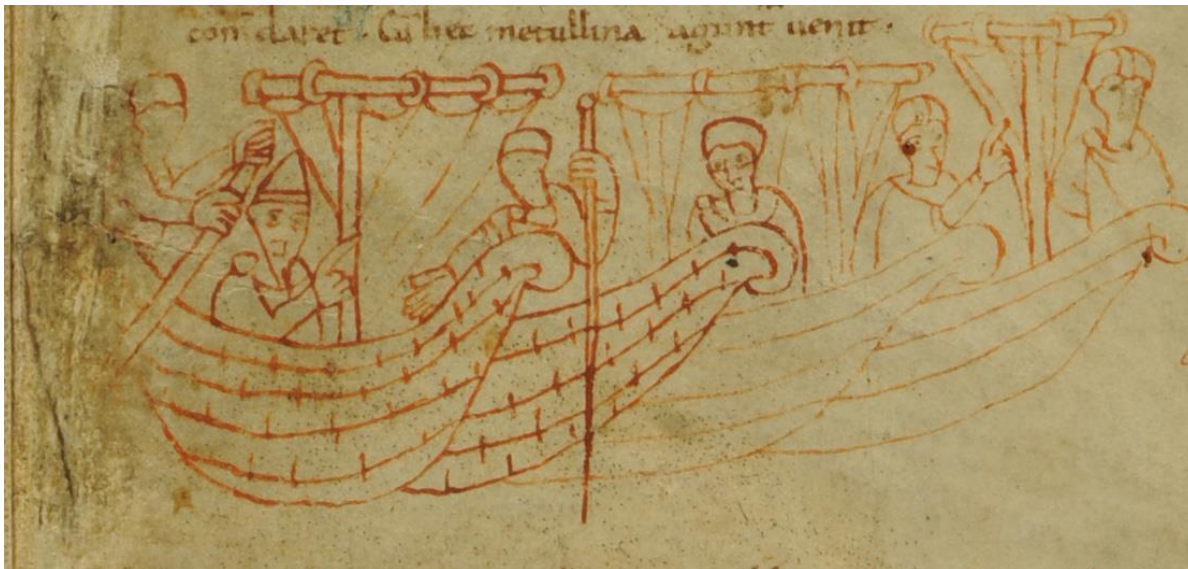 com̄ daret . Cū hec metullina agunt uenit .